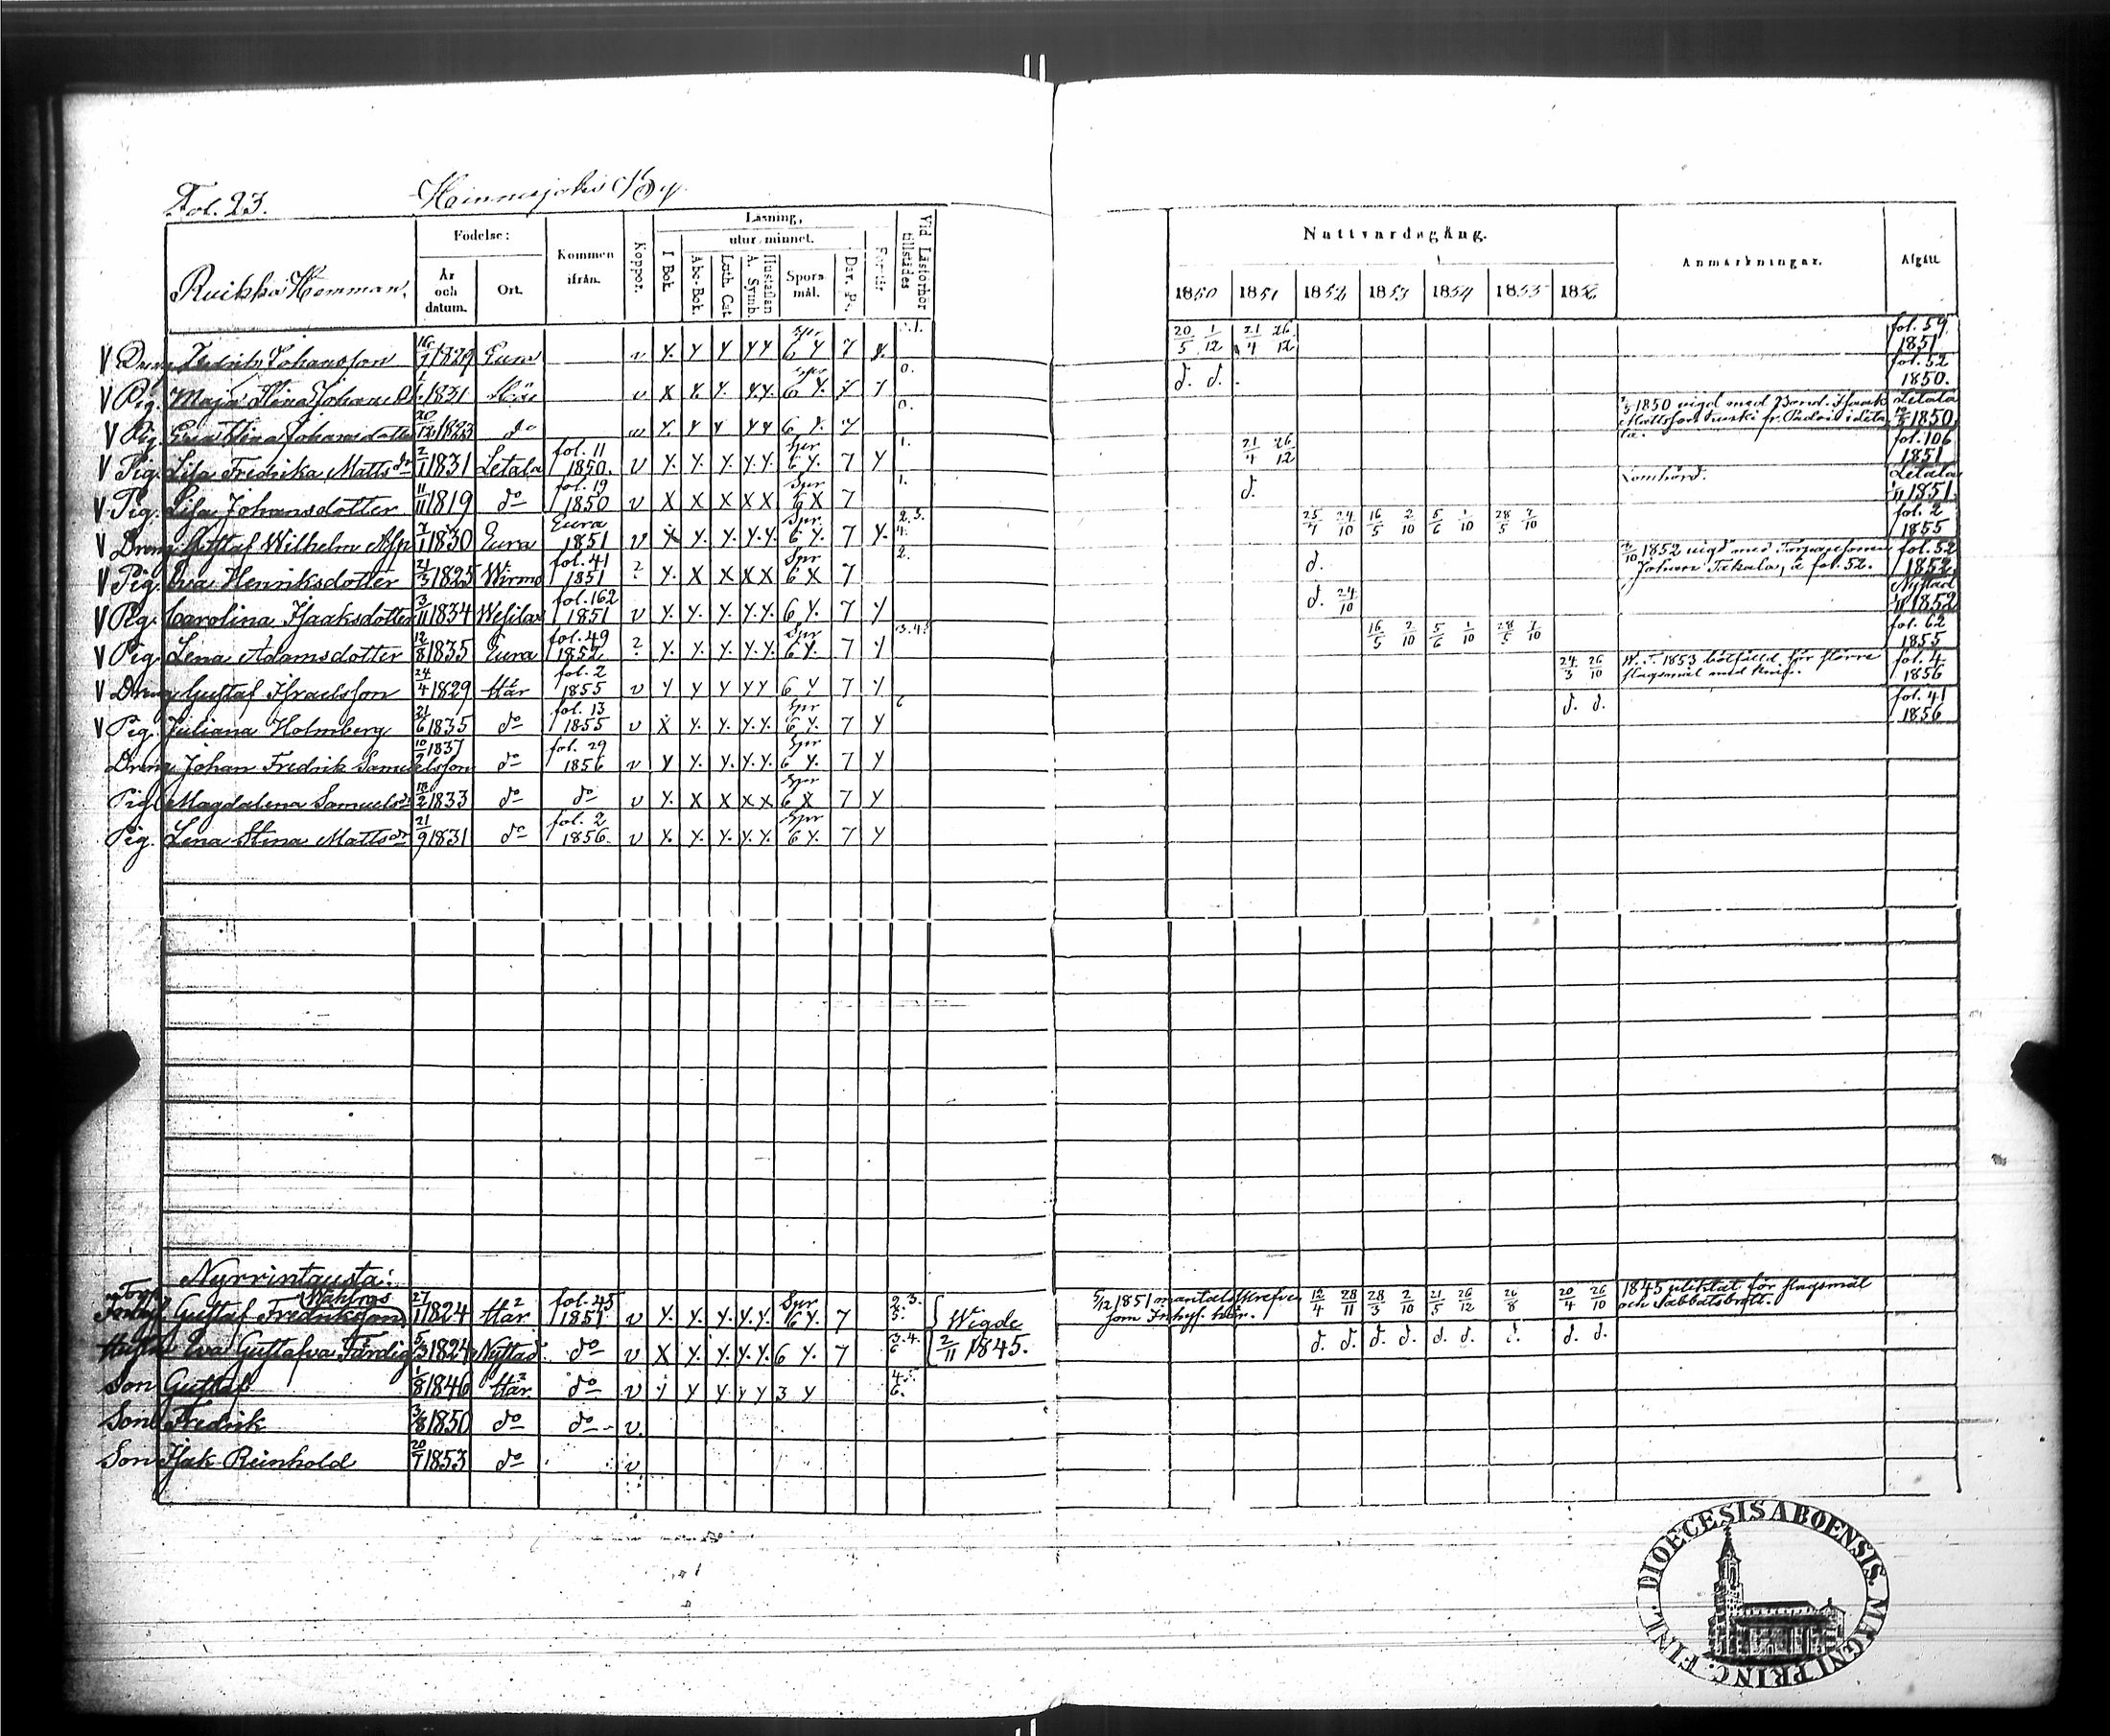 Fol. 23. Hinnerjoki By.
Ruikka Hemman.
Födelse:
År och datum.
Ort.
Kommen ifrån.
Koppor.
Läsning,
utur minnet.
I Bok.
Abc-Bok.
Luth. Cat
Hustaflan A. Symb.
Spörsmål.
Dav. Ps.
Förstår
Vid Läsförhör tillstädes
Nattvardsgång.
1850 1851 1852 1853 1854 1855 1856
Anmärkningar.
Afgått.
V Dreng Fredrik Johansson 16/7 1829 Eura v y. y y y y Spr 6 y 7 y. 20/5 1/12 21/4 26/12 fol. 59 1851
V Pig. Maja Stina Johans D. 1831 Här v X y. y.y. Spr 6 y. y y 0. d. d. fol. 52 1850.
V Pig. Eva Stina Johansdotter 20/12 1823 do y. y y y y 6 y. 7 0. 1850 vigd med Bond. Isaak Mattsson Letala 1850.
V Pig. Lisa Fredrika Matts dr 2/1 1831 Letala fol. 11 1850. v y. y. y. y.y. Spr 6 y. 7 y 1. 21/4 26/12 fol. 106 1851
V Pig. Lisa Johansdotter 11/11 1819 do fol. 19 1850 v X X X X X Spr 6 X 7 1. d. Lomhörd. Letala 1851.
V Dreng Gustaf Wilhelm Asp 1830 Eura Eura 1851 v y. y. y.y. Spr. 6 y. 7 y. 2.3. 4. 24/10 16/5 2/10 5/6 1/10 28/5 7/10 fol. 2 1855
V Pig. Eva Henriksdotter 21/3 1825 Wirmo fol. 41 1851 ? y. X X X X Spr 6 X 7 2. d. 1852 vigd med Torparesonen Johan Takala, å fol. 52. fol. 52 1852.
V Pig. Carolina Isaaksdotter 3/11 1834 fol. 162 1851 v y. y. y. y.y. 6 y. 7 y d. 24/10 Nystad 1852
V Pig. Lena Adamsdotter 12/8 1835 Eura fol. 49 1852 ? y. y. y. y.y. Spr 6 y. 7 y 3.4. 16/5 2/10 5/6 1/10 28/5 7/10 fol. 62 1855
V Dreng Gustaf Israelsson 24/4 1829 Här fol. 2 1855 v y y y y y 6 y 7 y 24/3 26/10 W. T. 1853 bötfälld för större slagsmål med knif. fol. 4 1856
V Pig. Juliana Holmberg 21/6 1835 do fol. 13 1855 v X y. y. y.y. Spr 6 y. 7 y 6 d. d. fol. 41 1856
Dreng Johan Fredrik Samuelsson 10/9 1837 do fol. 29 1856 v y y. y. y.y. Spr 6 y. 7 y
Pig. Magdalena Samuelsdr 18/2 1833 do do v y. X X X X Spr 6 X 7 y
Pig. Lena Stina Mattsdr 21/9 1831 do fol. 2 1856. v y. y. y. y.y. Spr 6 y. 7 y
Nyrrintausta:
Wahlros
Gustaf Fredriksson 27/1 1824 Här fol. 45 1851. v y. y. y. y.y. Spr 6 y. 7 2.3. 5. Wigde 5/12 1851 mantalsskrefven som Inhys. här. 12/4 28/11 28/3 2/10 21/5 26/12 26/8 20/4 26/10 1845 pliktat för slagsmål och Sabbatsbrott.
Hustru Eva Gustafva Färdig 5/3 1824 Nystad do v X y. y. y.y. 6 y. 7 3.4. 6 2/11 1845. d. d. d. d. d. d. d. d. d.
Son Gustaf 1/8 1846 Här do v y y y y y 3 y 4.5. 6.
Son Fredrik 3/8 1850 do do v.
Son Isak Reinhold 20/7 1853 do v
DIOECESIS ABOENSIS. MAGNI PRINC. FINL.